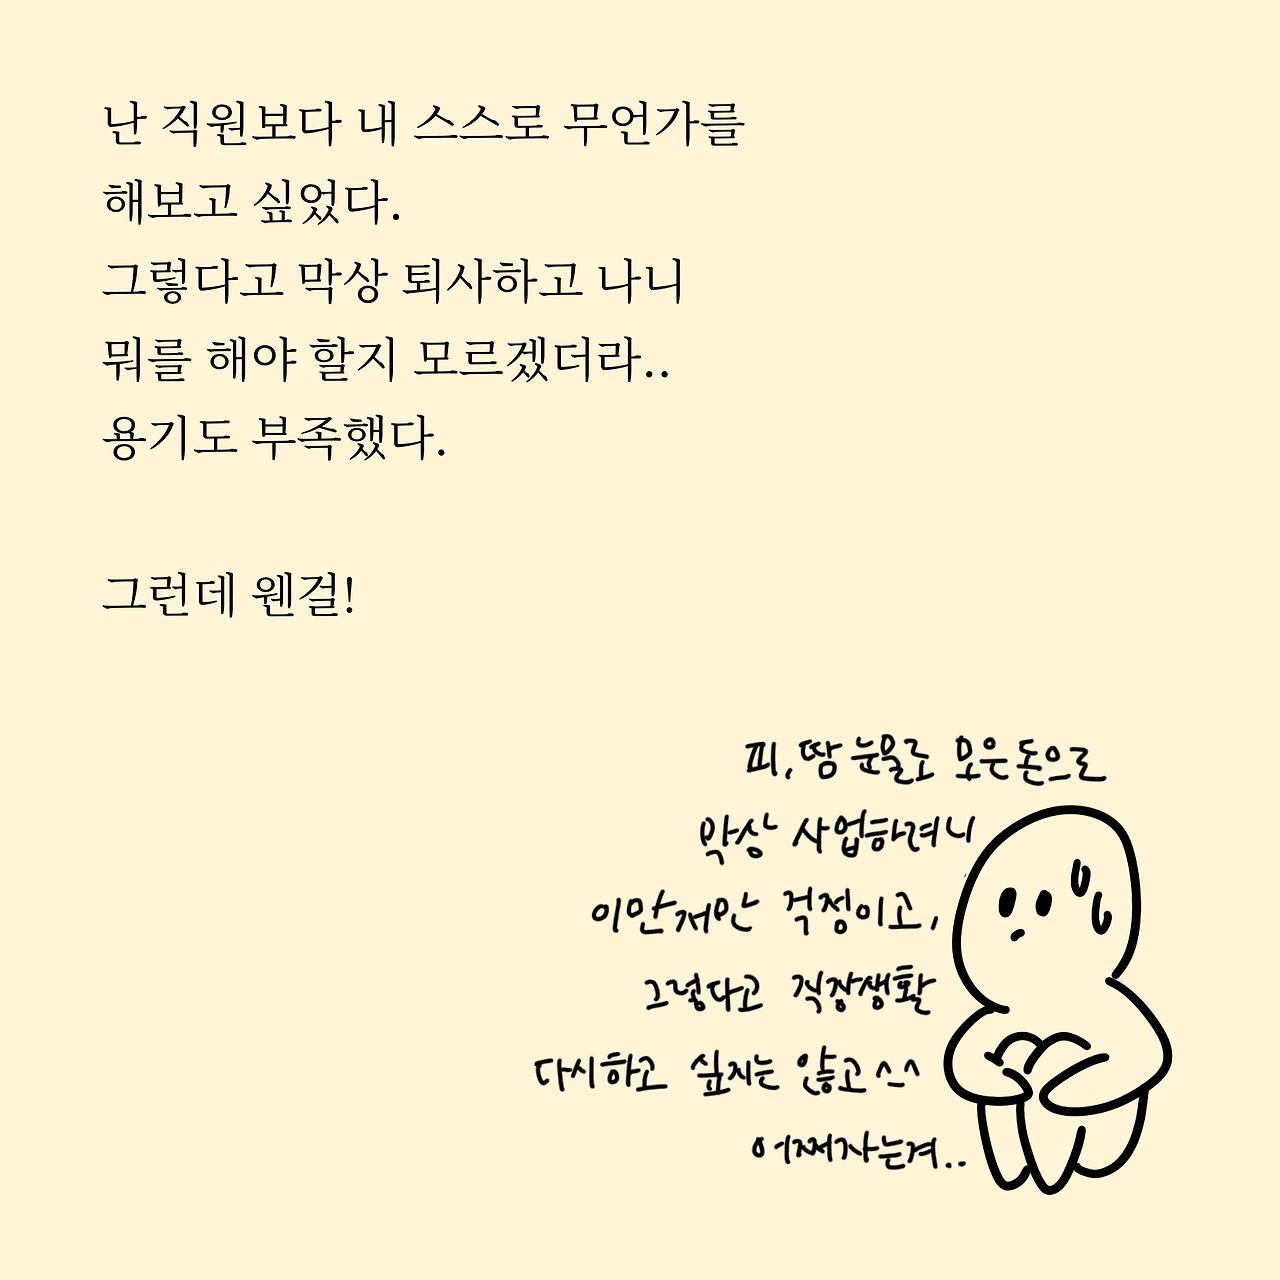 난 직원보다 내 스스로 무언가를
해보고 싶었다.
그렇다고 막상 퇴사하고 나니
뭐를 해야 할지 모르겠더라..
용기도 부족했다.
그런데 웬걸!
피,땀 눈물로 모은돈으로
막상 사업하려니
이만저만 걱정이고,
그렇다고 직장생활
다시하고 싶지는 않고^-^
어쩌자는겨..